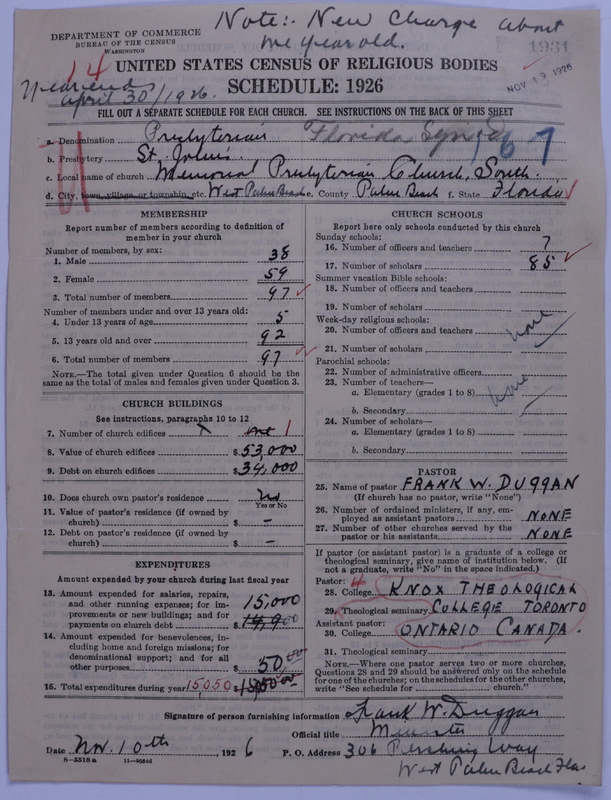 Note:- New Charge about
one year old.
DEPARTMENT OF COMMERCE
BUREAU OF THE CENSUS
WASHINGTON
1931
14
UNITED STATES CENSUS OF RELIGIOUS BODIES
NOV 19 1926
SCHEDULE: 1926
april 30/1926.
FILL OUT A SEPARATE SCHEDULE FOR EACH CHURCH. SEE INSTRUCTIONS ON THE BACK OF THIS SHEET
a. Denomination Presbyterian Florida Synod 167
b. Presbytery St. John's
c. Local name of church Memorial Presbyterian Church, South.
d. City, town, village, or township, etc. West Palm Beach e. County Palm Beach f. State Florida
MEMBERSHIP
Report number of members according to definition of member in your church
Number of members, by sex:
1. Male 38
2. Female 59
3. Total number of members 97
Number of members under and over 13 years old:
4. Under 13 years of age 5
5. 13 years old and over 92
6. Total number of members 97
NOTE.—The total given under Question 6 should be the same as the total of males and females given under Question 3.
CHURCH BUILDINGS
See instructions, paragraphs 10 to 12
7. Number of church edifices one 1
8. Value of church edifices $53,000
9. Debt on church edifices $
10. Does church own pastor's residence No
Yes or No
11. Value of pastor's residence (if owned by church) $ -
12. Debt on pastor's residence (if owned by church) $ -
EXPENDITURES
Amount expended by your church during last fiscal year
13. Amount expended for salaries, repairs, and other running expenses; for improvements or new buildings; and for payments on church debt 15,000
14. Amount expended for benevolences, including home and foreign missions; for denominational support; and for all other purposes $50.00
15. Total expenditures during year 15,050
CHURCH SCHOOLS
Report here only schools conducted by this church
Sunday schools:
16. Number of officers and teachers 7
17. Number of scholars 85
Summer vacation Bible schools:
18. Number of officers and teachers
19. Number of scholars
Week-day religious schools:
20. Number of officers and teachers none
21. Number of scholars
Parochial schools:
22. Number of administrative officers
23. Number of teachers—
a. Elementary (grades 1 to 8) none
b. Secondary
24. Number of scholars—
a. Elementary (grades 1 to 8)
b. Secondary
PASTOR
25. Name of pastor FRANK W. DUGGAN
(If church has no pastor, write "None")
26. Number of ordained ministers, if any, employed as assistant pastors NONE
27. Number of other churches served by the pastor or his assistants NONE
If pastor (or assistant pastor) is a graduate of a college or theological seminary, give name of institution below. (If not a graduate, write "No" in the space indicated.)
Pastor: 4
28. College KNOX THEOLOGICAL
29. Theological seminary COLLEGE TORONTO
Assistant pastor:
30. College ONTARIO CANADA.
31. Theological seminary
NOTE.—Where one pastor serves two or more churches, Questions 28 and 29 should be answered only on the schedule for one of the churches; on the schedules for the other churches, write "See schedule for ........ church."
Signature of person furnishing information Frank W. Duggan
Official title Minister
Date Nov. 10th, 1926
P. O. Address 306 Pershing Way
West Palm Beach Fla
8-5518a